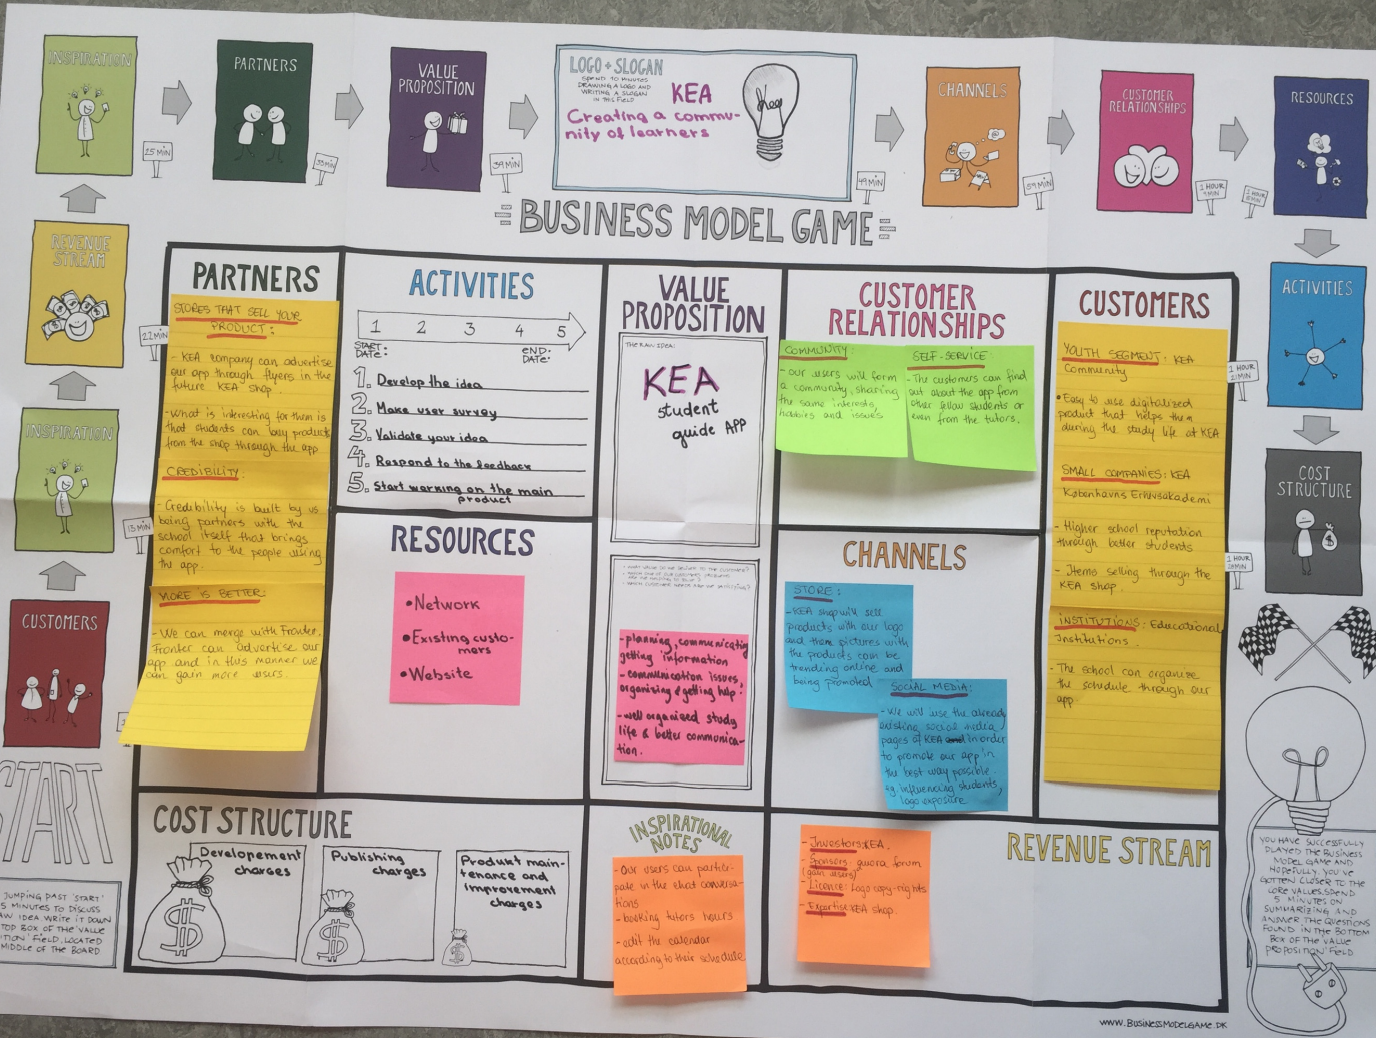 INSPIRATION
PARTNERS
VALUE
PROPOSITION
LOGO + SLOGAN
SPEND 10 MINUTES
DRAWING A LOGO AND
WRITING A SLOGAN
IN THIS FIELD
KEA
Creating a commu-
nity of learners
Kea
CHANNELS
CUSTOMER
RELATIONSHIPS
RESOURCES
25 MIN
33 MIN
39 MIN
49 MIN
59 MIN
1 HOUR
9 MIN
1 HOUR
REVENUE
STREAM
22 MIN
INSPIRATION
15 MIN
CUSTOMERS
START
JUMPING PAST 'START'
5 MINUTES TO DISCUSS
AW IDEA WRITE IT DOWN
TOP BOX OF THE 'VALUE
ITION' FIELD, LOCATED
MIDDLE OF THE BOARD
BUSINESS MODEL GAME
PARTNERS
STORES THAT SELL YOUR
PRODUCT:
- KEA company can advertise
our app through flyers in the
future KEA shop.
- What is interesting for them is
that students can buy products
from the shop through the app
CREDIBILITY:
- Credibility is built by us
being partners with the
school itself that brings
comfort to the people using
the app.
MORE IS BETTER:
- We can merge with Fronter.
Fronter can advertise our
app and in this manner we
can gain more users.
ACTIVITIES
1 2 3 4 5
START
DATE:
END
DATE:
1. Develop the idea
2. Make user survey
3. Validate your idea
4. Respond to the feedback
5. Start working on the main
product
RESOURCES
• Network
• Existing custo-
mers
• Website
VALUE
PROPOSITION
THE RAW IDEA:
KEA
student
guide APP
- planning, communicating
getting information
- communication issues,
organizing & getting help.
- well organised study
life & better communica-
tion.
CUSTOMER
RELATIONSHIPS
COMMUNITY:
- our users will form
a community, sharing
the same interests,
hobbies and issues
SELF-SERVICE
- The customers can find
out about the app from
other fellow students or
even from the tutors.
CHANNELS
STORE:
- KEA shop will sell
products with our logo
and them pictures with
the products can be
trending online and
being promoted
SOCIAL MEDIA:
- We will use the already
existing social media
pages of KEA in order
to promote our app in
the best way possible.
eg. influencing students,
logo exposure
CUSTOMERS
YOUTH SEGMENT: KEA
Community
• Easy to use digitalized
product that helps them
during the study life at KEA
SMALL COMPANIES: KEA
Københavns Erhvsakademi
- Higher school reputation
through better students
- Items selling through the
KEA shop.
INSTITUTIONS: Educational
Institutions.
- The school can organize
the schedule through our
app
COST STRUCTURE
Developement
charges
Publishing
charges
Produkt main-
tenance and
improvement
charges
INSPIRATIONAL
NOTES
- Our users can partici-
pate in the chat conversa-
tions
- booking tutors hours
- edit the calendar
according to their schedule
REVENUE STREAM
- Investors: KEA.
- Sponsors: quora forum
(gain users)
- Licence: Logo copy-rights
- Expertise: KEA shop.
ACTIVITIES
1 HOUR
21 MIN
COST
STRUCTURE
1 HOUR
YOU HAVE SUCCESSFULLY
PLAYED THE BUSINESS
MODEL GAME AND
HOPEFULLY, YOU'VE
GOTTEN CLOSER TO THE
CORE VALUE. SPEND
5 MINUTES ON
SUMMARIZING AND
ANSWER THE QUESTIONS
FOUND IN THE BOTTOM
BOX OF THE 'VALUE
PROPOSITION' FIELD
WWW.BUSINESSMODELGAME.DK